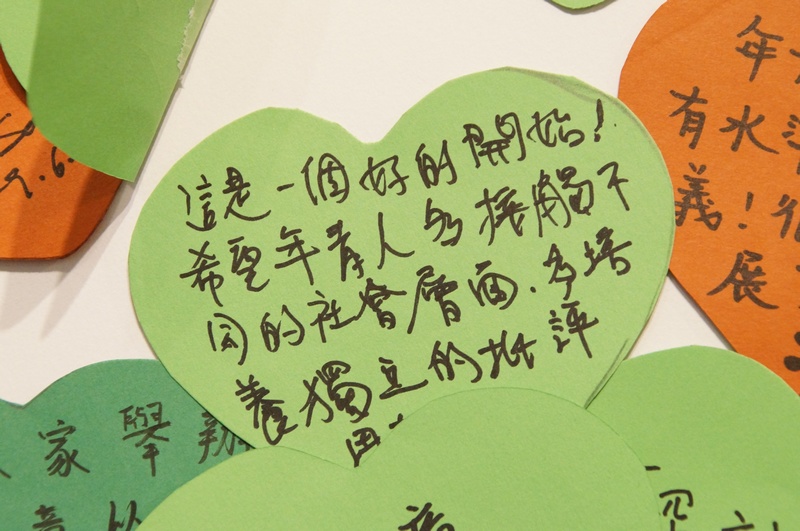 這是一個好的開始!
希望年青人多接觸不
同的社會層面.多培
養獨立的批評
思
年
有水
義!很
展
家舉辦